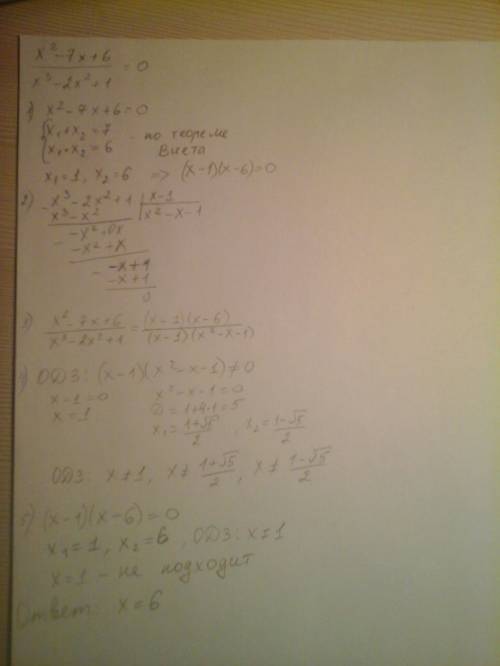 x² - 7x + 6 / x³ - 2x² + 1 = 0
1) x² - 7x + 6 = 0
{ x₁ + x₂ = 7
{ x₁ · x₂ = 6 - по теореме Виета
x₁ = 1, x₂ = 6 => (x-1)(x-6) = 0
2) - x³ - 2x² + 1 | x - 1
x³ - x² | x² - x - 1
- -x² + 0x
-x² + x
- -x + 1
-x + 1
0
3) x² - 7x + 6 / x³ - 2x² + 1 = (x-1)(x-6) / (x-1)(x² - x - 1)
4) ОДЗ: (x-1)(x² - x - 1) ≠ 0
x - 1 = 0 x² - x - 1 = 0
x = 1 D = 1 + 4·1 = 5
x₁ = 1+√5 / 2 , x₂ = 1-√5 / 2
ОДЗ: x ≠ 1, x ≠ 1+√5 / 2 , x ≠ 1-√5 / 2
5) (x-1)(x-6) = 0
x₁ = 1, x₂ = 6, ОДЗ: x ≠ 1
x = 1 - не подходит
Ответ: x = 6